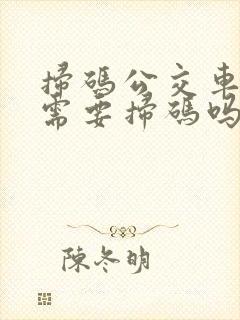 掃碼公交車
需要掃碼嗎
陳冬明